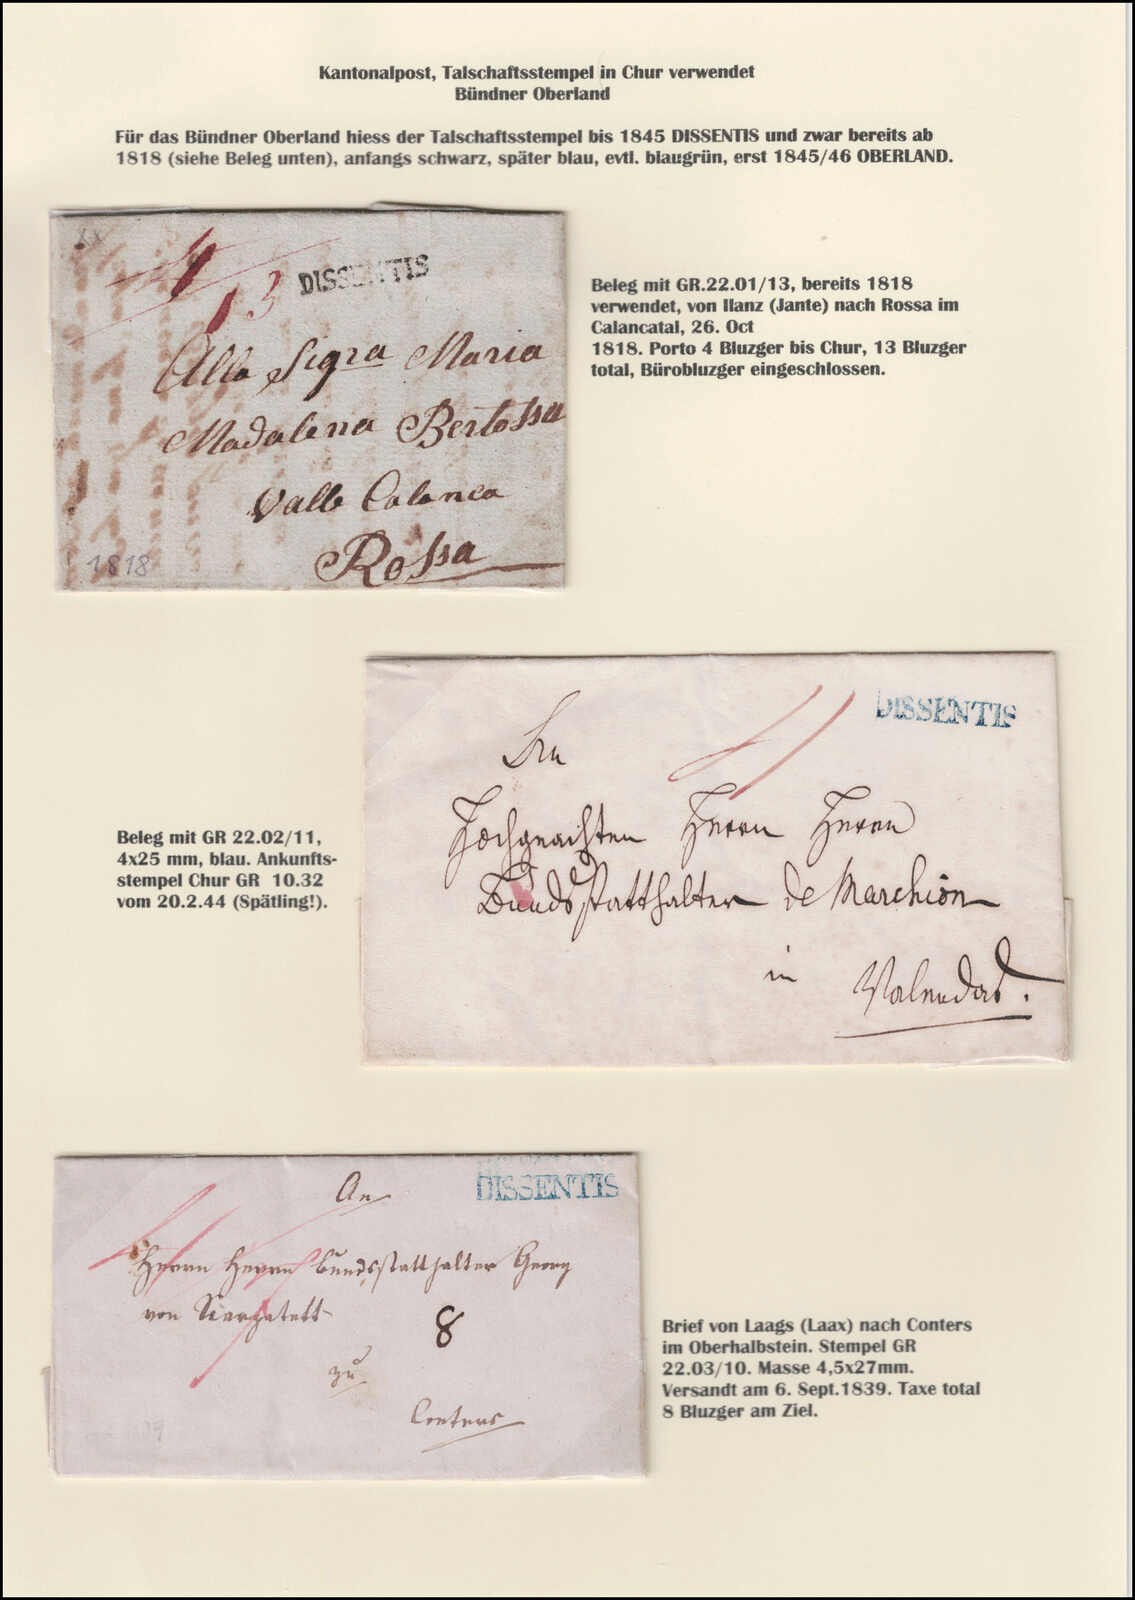 Kantonalpost, Talschaftsstempel in Chur verwendet
Bündner Oberland
Für das Bündner Oberland hiess der Talschaftsstempel bis 1845 DISSENTIS und zwar bereits ab
1818 (siehe Beleg unten), anfangs schwarz, später blau, evtl. blaugrün, erst 1845/46 OBERLAND.
DISSENTIS
13
Alla Sigra Maria
Madalena Bertossa
Valle Calanca
Rossa
1818
Beleg mit GR.22.01/13, bereits 1818
verwendet, von Ilanz (Jante) nach Rossa im
Calancatal, 26. Oct
1818. Porto 4 Bluzger bis Chur, 13 Bluzger
total, Bürobluzger eingeschlossen.
DISSENTIS
Hochgeachten Herrn Herrn
Bundsstatthalter de Marchion
in Valendas.
Beleg mit GR 22.02/11,
4x25 mm, blau. Ankunfts-
stempel Chur GR 10.32
vom 20.2.44 (Spätling!).
DISSENTIS
An
Herrn Herrn Bundsstatthalter Georg
von
8
zu
Conters
Brief von Laags (Laax) nach Conters
im Oberhalbstein. Stempel GR
22.03/10. Masse 4,5x27mm.
Versandt am 6. Sept.1839. Taxe total
8 Bluzger am Ziel.